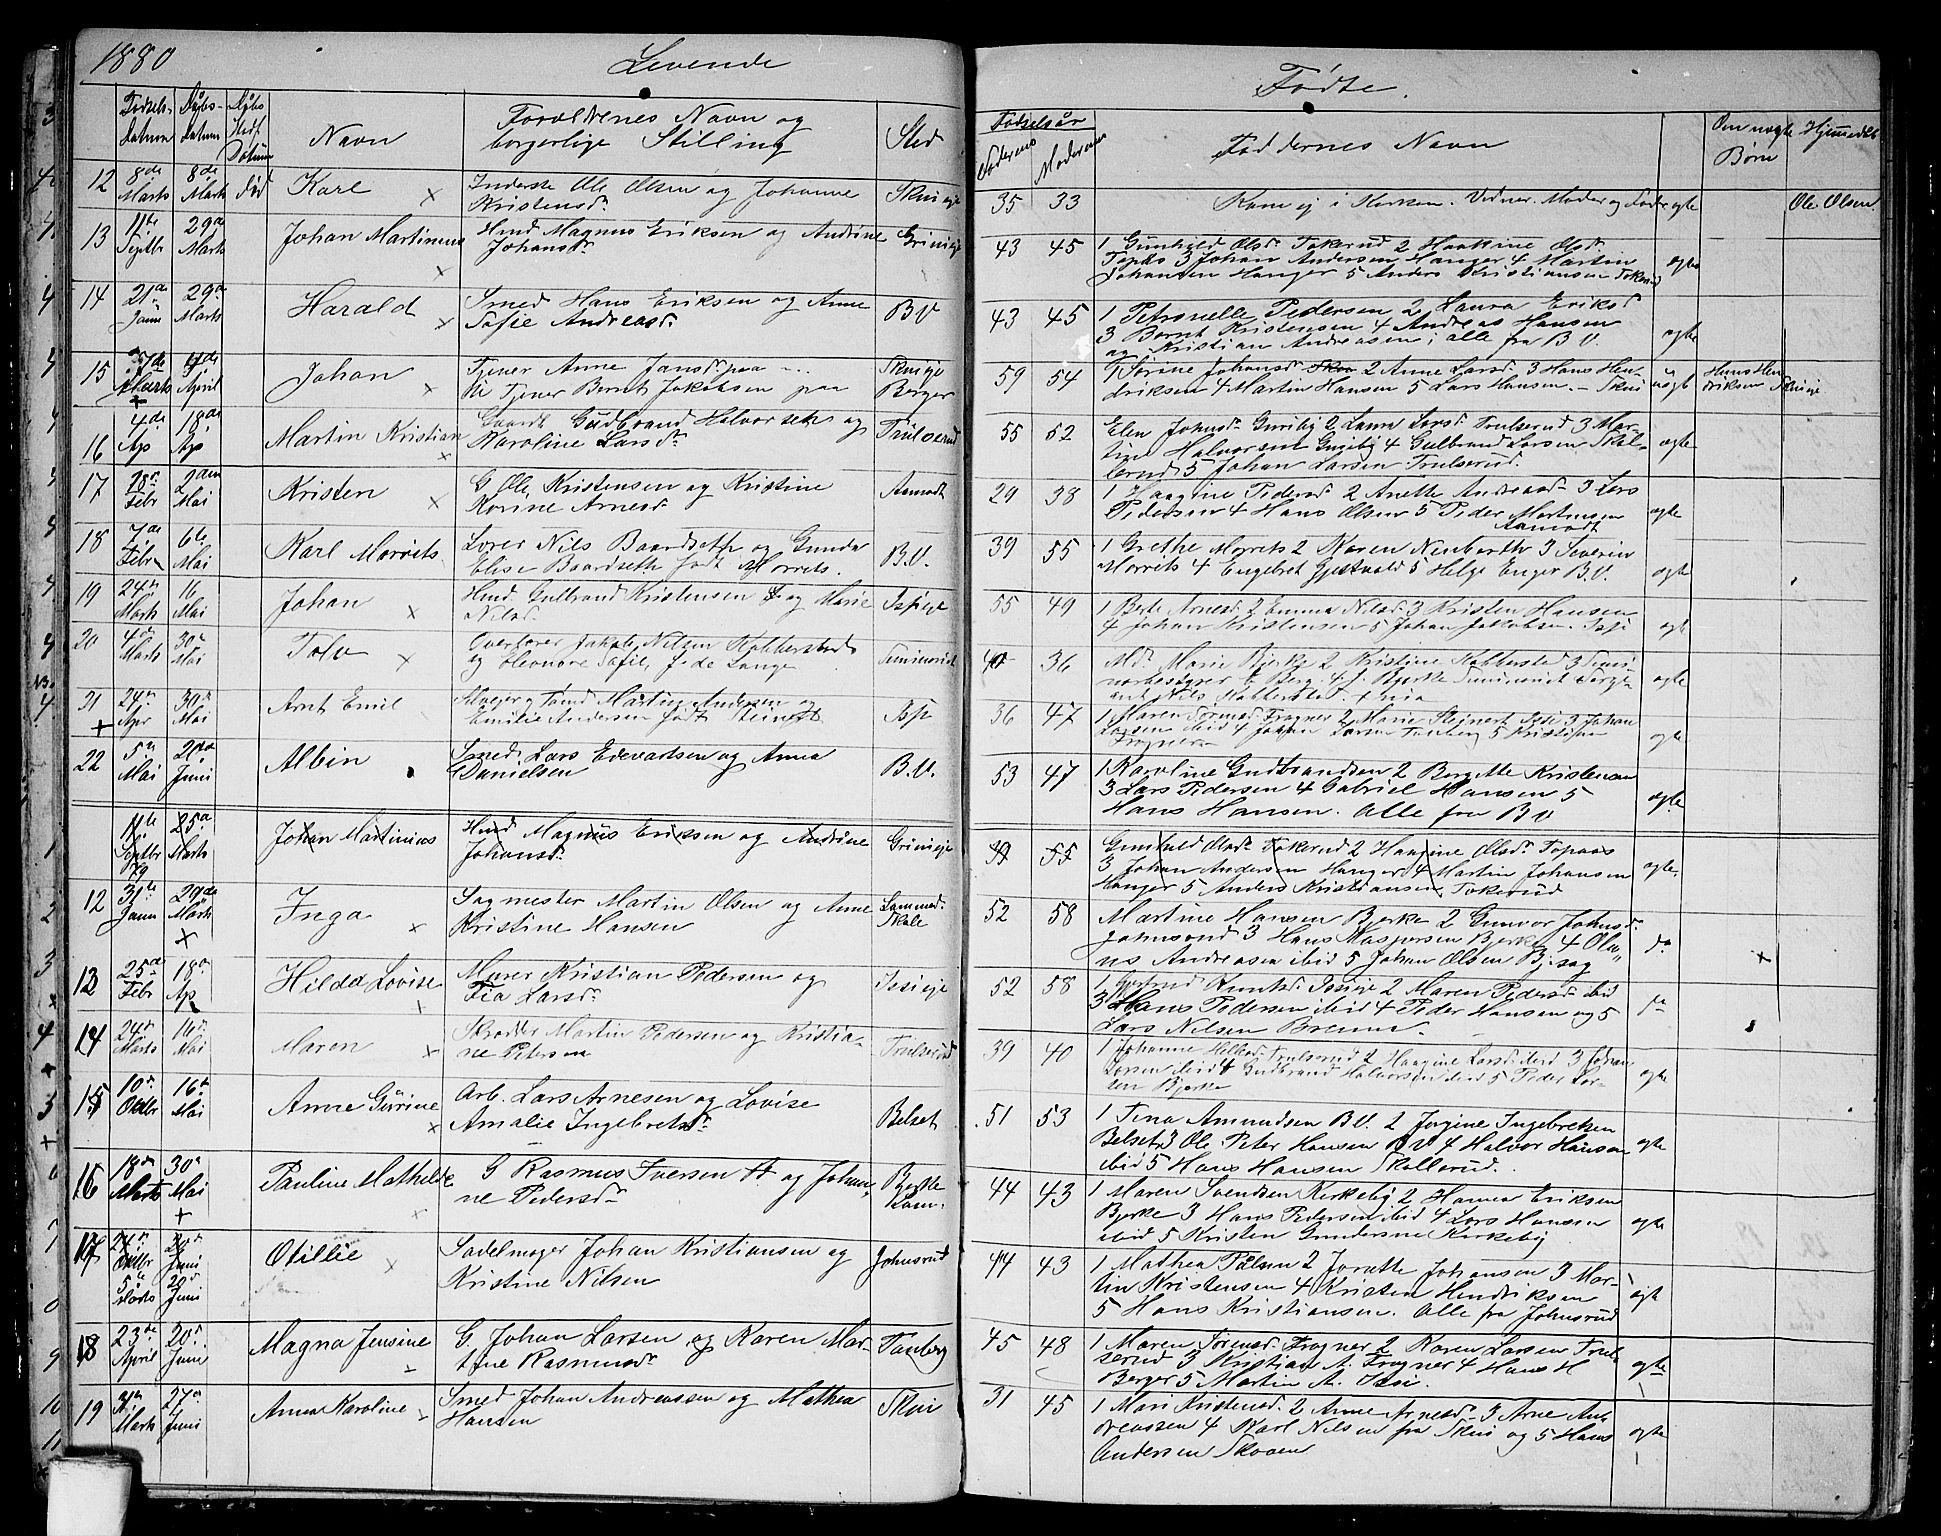 1880
Levende
Fødte.
Fødsels-
Datum
Dåbs-
datum
Dåbs
Sted
Datum
Navn
Forældrenes Navn og
borgerlige Stilling
Sted
Fødselsår
Faderens
Moderens
Faddernes Navn
Om uægte
Børn
Hjemmedøbt
12
8de
Marts
8de
Marts
død
Karl
Inderste Ole Olsen og Johanne
Kristensd.
35
33
Kom ej i Kirken. Vidner. Moder og Fader
ægte
Ole Olsen
13
11te
Septbr
29de
Marts
Johan Martinius
Hmd Magnus Eriksen og Andrine
Johansd.
Grinieje
43
45
1 Gunhild Olsd. Tokerud 2 Haakine Olsd.
3 Johan Andersen Hanger 4 Martin
Johansen Hanger 5 Anders Kristiansen Tokerud
ægte
14
21de
Janu
29de
Marts
Harald
Smed Hans Eriksen og Anne
Sofie Andreasd.
B.V
43
45
1 Petronelle Pedersen 2 Hanna Eriksd
3 Bernt Kristensen 4 Andreas Hansen
og Kristian Andreasen, alle fra B.V.
ægte
15
Marts
April
Johan
Tjener Anne Jansd. paa
til Tjener Bernt Jakobsen paa
Skuieje
Berger
59
54
1 Sørine Johansd. 2 Anne Larsd. 3 Hans Hen-
driksen 4 Martin Hansen 5 Lars Hansen. – Skui
uægte
Hans Hen
driksen Skuieje
16
4de
Ap
18de
Ap
Martin Kristian
Gaardb. Gudbrand Halvorsen og
Karoline Larsd.
Trulserud
55
52
Elen Johnsd. Guriby 2 Laura Larsd. Trulserud 3 Mar-
tin Halvorsen Guriby 4 Gulbrand Larsen Skol-
lerud 5 Johan Larsen Trulserud.
ægte
17
28de
Febr
2den
Mai
Kristen
G. Ole Kristensen og Kristine
Korine Arnesd
Aamodt
29
38
1 Haagine Pedersd. 2 Anette Andreasd. 3 Lars
Pedersen 4 Hans Olsen 5 Peder Martinsen
Aamodt
ægte
18
7de
Febr
6te
Mai
Karl Morrits
Lærer Nils Baardseth og Gunda
Elise Baardseth født Morrits.
B.V.
39
55
1 Grethe Morrits 2 Karen Neuberth 3 Severin
Morrits 4 Engebret Gjestvold 5 Helge Enger B.V.
ægte
19
24de
Marts
16
Mai
Johan
Hmd Gulbrand Kristensen og Marie
Nilsd.
Isieje
55
49
1 Berte Arnesd. 2 Emma Nilsd. 3 Kristen Hansen
4 Johan Kristensen 5 Johan Jakobsen. Isi
ægte
20
4de
Marts
30te
Mai
Tolv
Overlærer Jakob Nilsen Kobberstad
og Eleonore Sofie, f. de Lange
36
Md. Marie Bjerke 2 Kristine Kobberstad 3 Semi-
narbestyrer Berg 4 J. Bjerke
ægte
21
24de
Apr
30te
Mai
Arnt Emil
Martin Andersen og
Emilie Andersen født Steinert
Isi
36
47
1 Maren Sørensd. Frogner 2 Marie Steinert Isi 3 Johan
Larsen ibid 4 Johan Larsen Tanberg 5 Kristian
Frogner
ægte
22
5te
Mai
20de
Juni
Albin
Smed. Lars Edevartsen og Anna
Danielsen
B.V.
53
47
1 Karoline Gudbrandsen 2 Bergitte Kristensen
3 Lars Pedersen 4 Gabriel Hansen 5
Hans Hansen. Alle fra B.V
ægte
1
11te
Septbr
79
25de
Marts
Johan Martinius
Hmd Magnus Eriksen og Andrine
Johansd.
Grinieje
55
Gunhild Olsd. Tokerud 2 Haagine Olsd. Topaas
3 Johan Andersen Hanger 4 Martin Johansen
Hanger 5 Anders Kristiansen, Tokerud
ægte.
12
31te
Janu
29de
Marts
Inga
Sagmester Martin Olsen og Anne
Kristine Hansen
Lommed.
Skole
52
58
Martine Hansen Bjerke 2 Gunvor Johnsd.
Johnsrud 3 Hans Kaspersen Bjerke 4 Ole
Andreasen ibid 5 Johan Olsen Bj.sag
do
13
25de
Febr
18de
Ap
Hilda Lovise
Murer Kristian Pedersen og
Fia Larsd.
Issieje
52
58
1 Gjertrud Knutsd. Issieje 2 Maren Pedersd. ibid
3 Hans Pedersen ibid 4 Peder Hansen og 5
Lars Nilsen Brenna.
do
14
24de
Marts
16de
Mai
Maren
Skrædder Martin Pedersen og Kristia-
ne Petersen
Trulserud
39
40
1 Johanne Trulserud 2 Haagine Larsd. ibid 3 Johan
Larsen ibid 4 Gudbrand Halvorsen ibid 5 Peder Lar-
sen Bjerke
ægte
15
10de
Oktbr
16de
Mai
Anne Gurine
Arb. Lars Arnesen og Lovise
Amalie Ingebretsd.
Belset
51
53
1 Tina Amundsen B.V. 2 Jorgine Ingebretsen
Belset 3 Ole Peter Hansen B.V 4 Halvor Hansen
ibid 5 Hans Hansen Skollerud.
ægte
16
18de
Marts
30te
Mai
Pauline Mathilde
G. Rasmus Iversen og Johan-
ne Pedersd.
44
43
1 Maren Svendsen Kirkeby 2 Hanna Eriksen
Bjerke 3 Hans Pedersen ibid 4 Lars Hansen
ibid 5 Kristen Gundersen Kirkeby
ægte
17
Oktbr
5te
Marts
Juni
20de
Juni
Otillie
Sadelmager Johan Kristiansen og
Kristine Nilsen
Johnsrud
44
43
1 Mathea Pålsen 2 Jorette Johansen 3 Mar-
tin Kristensen 4 Kristen Hendriksen
5 Hans Kristiansen. Alle fra Johnsrud
ægte
18
23de
April
20de
Juni
Magna Jensine
G. Johan Larsen og Karen Mar-
tine Rasmusd.
Tanberg
45
48
1 Maren Sørensd. Frogner 2 Karen Larsen Trul-
serud 3 Kristian A. Frogner 4 Hans H
Berger 5 Martin A. Issi.
ægte
19
31te
Marts
27de
Juni
Anna Karoline
Smed Johan Andreassen og Mathea
Hansen
Skui
31
45
1 Mari Kristensd. 2 Anne Arnesd. 3 Arne An-
dreassen 4 Karl Nilsen fra Skui og 5 Hans
Andersen Skoven
ægte